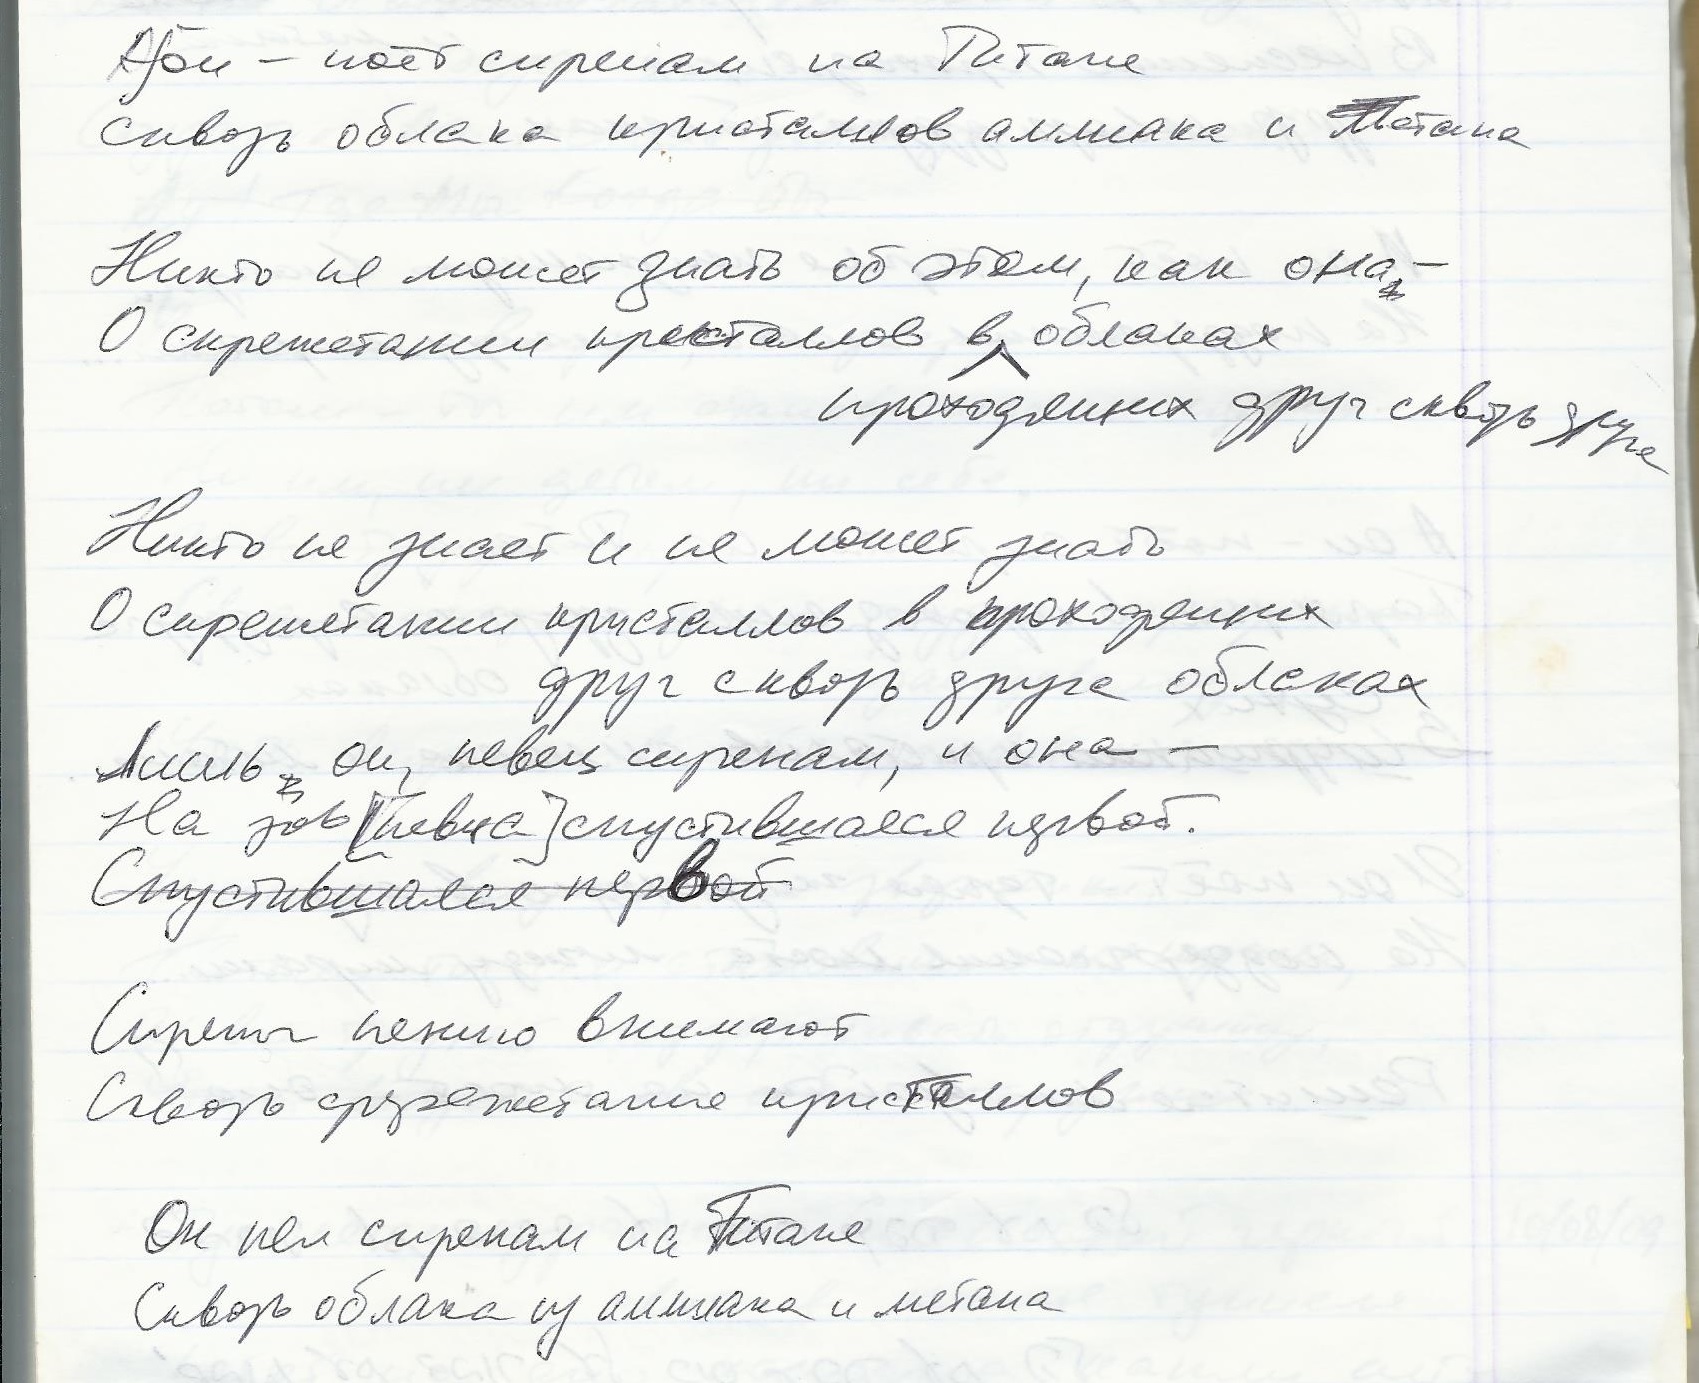 А он – поёт сиренам на Титане
сквозь облака кристаллов аммиака и метана
Никто не может знать об этом, как она, –
О скрежетании кристаллов в облаках
проходящих друг сквозь друга
Никто не знает и не может знать
О скрежетании кристаллов в проходящих
друг сквозь друга облаках
Лишь он, певец сиренам, и она –
На зов [певца] спустившаяся первой.
Спустившаяся первой
Сирены пению внимают
Сквозь скрежетание кристаллов
Он пел сиренам на Титане
Сквозь облака из аммиака и метана